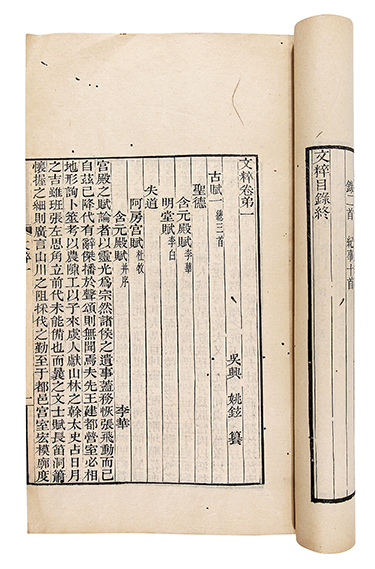 錄二首　紀事十首
文粹目錄終
文粹卷第一
吳興　姚鉉　纂
古賦一 總三首
聖德
含元殿賦 李華
明堂賦 李白
失道
阿房宮賦 杜牧
含元殿賦 并序
李華
宮殿之賦論者以靈光爲宗然諸侯之遺事蓋務恢張飛動而已
自茲已降代有辭傑播於聲頌則無聞焉夫先王建都營室必相
地形詢卜筮考以農隙工以子來虞人獻山林之榦太史占日月
之吉雖班張左思角立前代未能備也而曩之文士賦長笛洞簫
懷握之細則廣言山川之阻採伐之勤至于都邑宮室宏模廓度